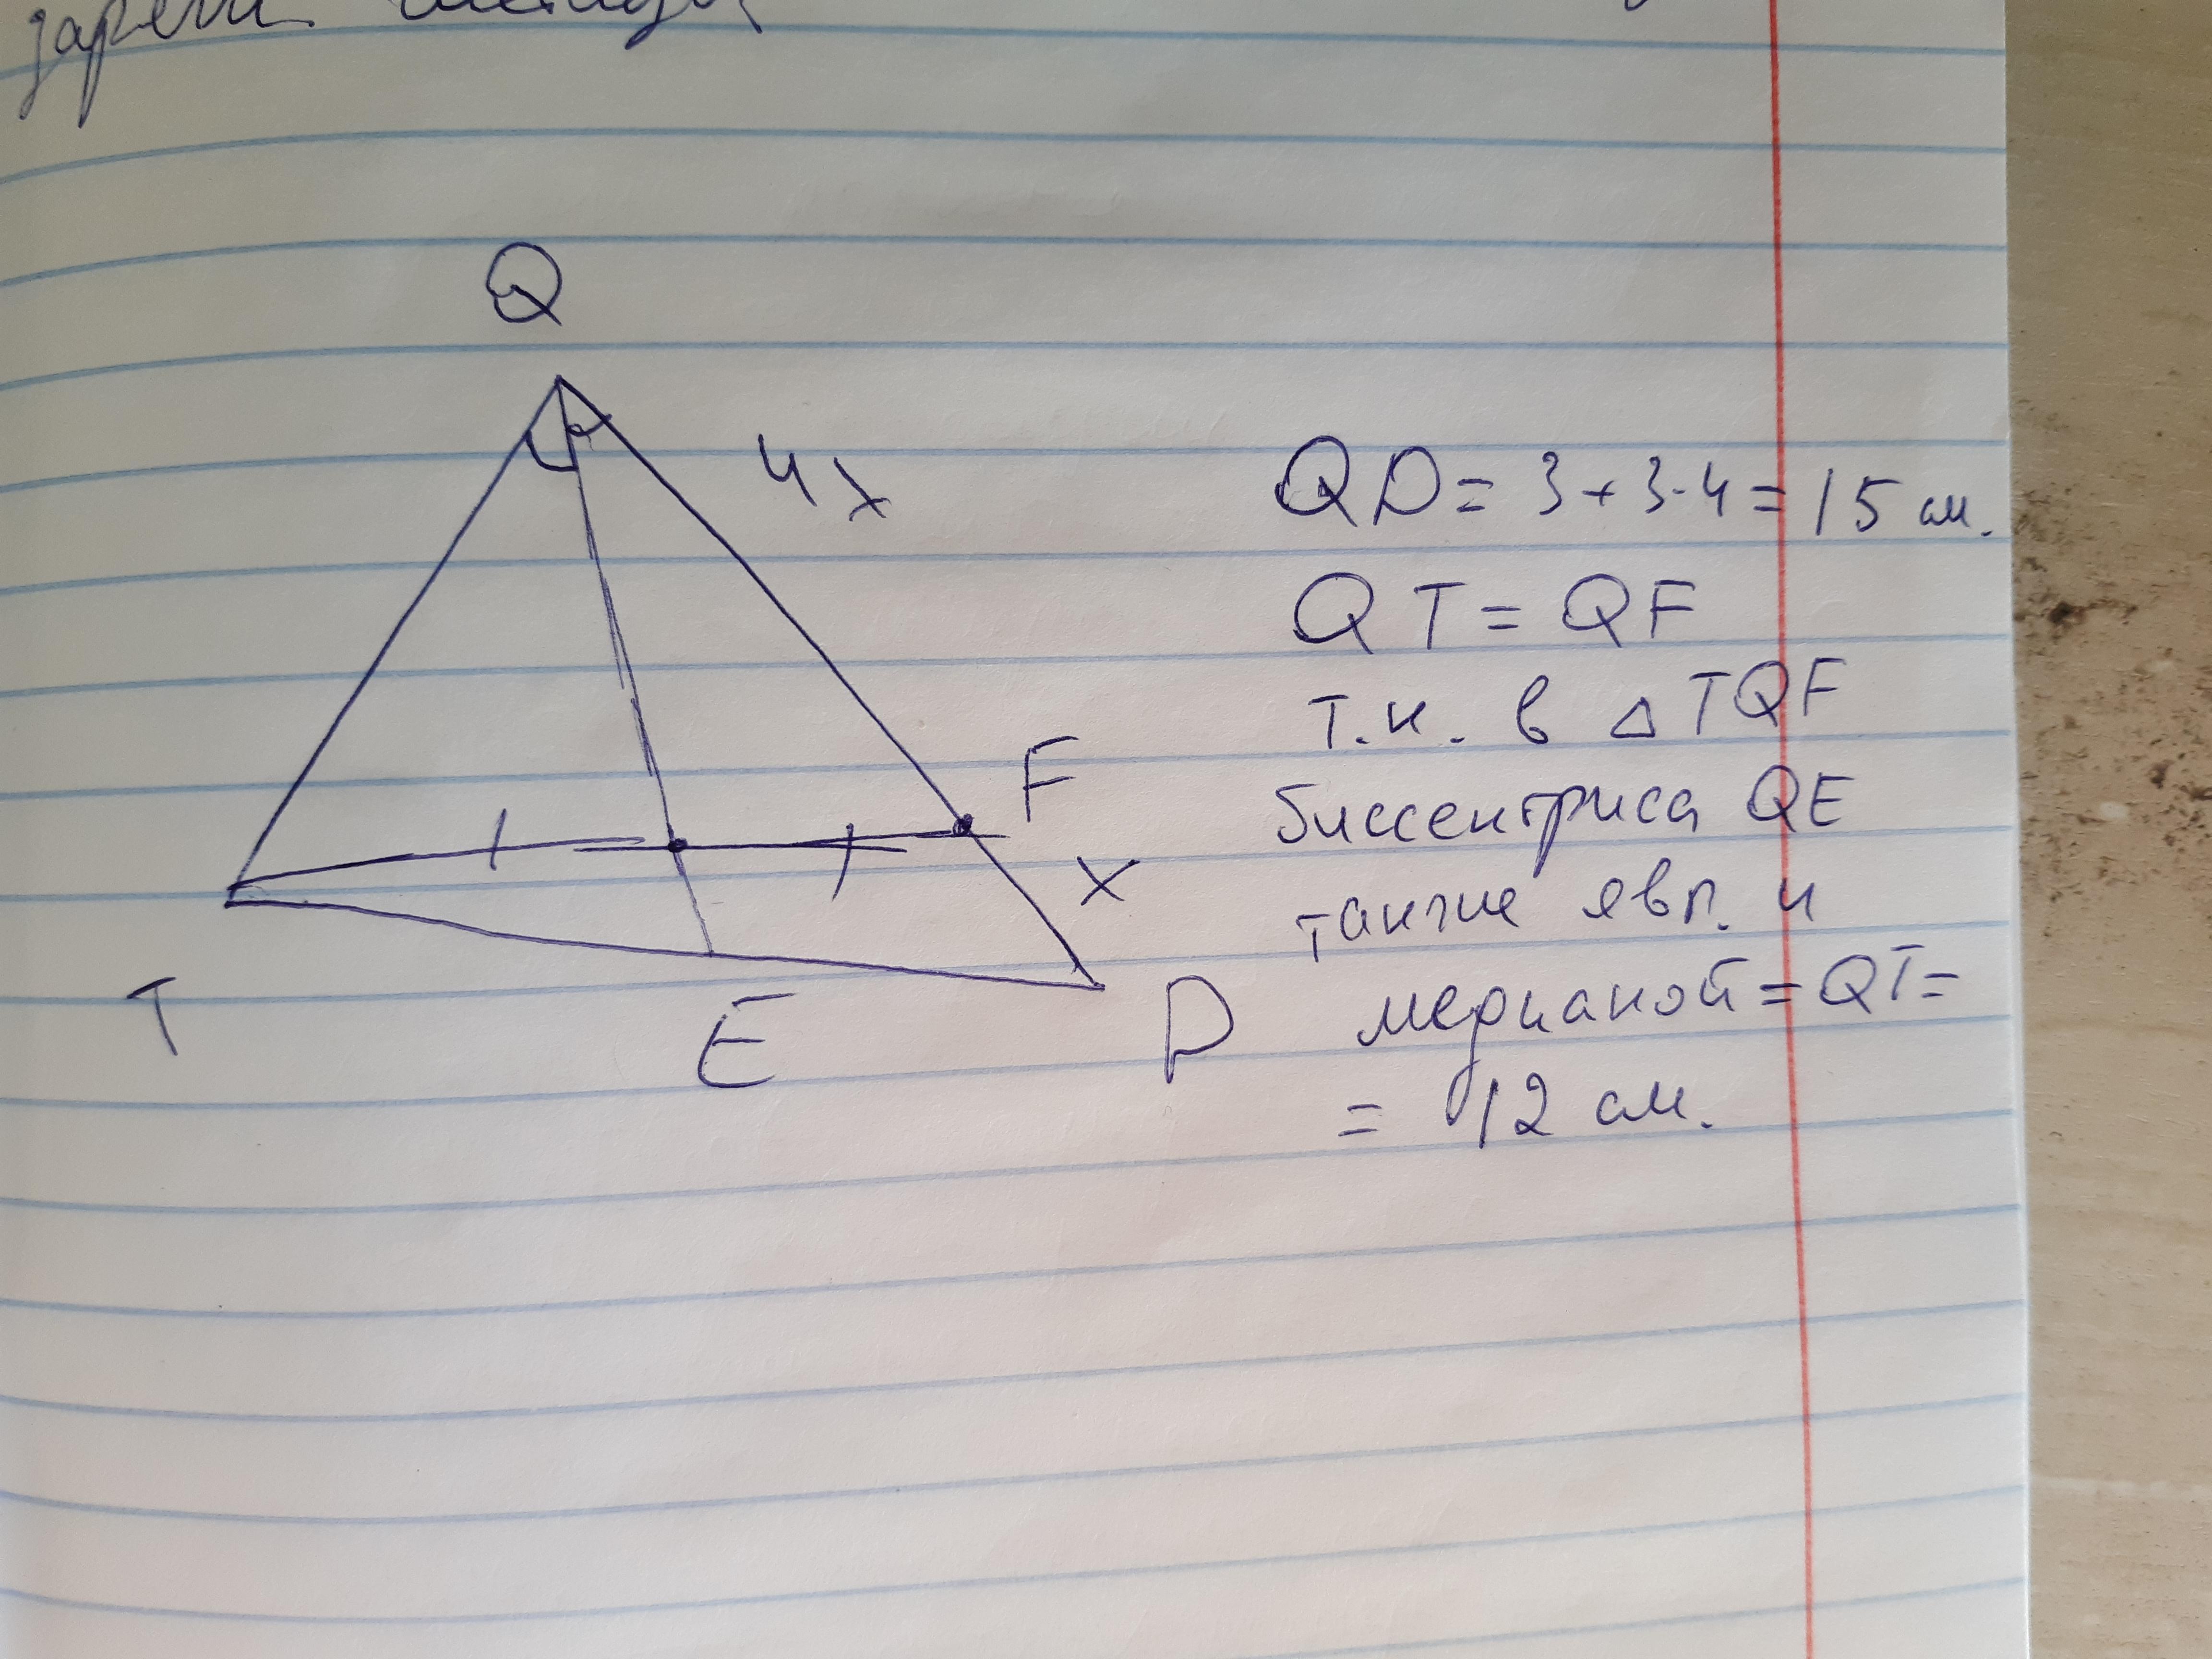 Q
4x
F
x
T
E
D
QD = 3 + 3·4 = 15 см.
QT = QF
т.к. в △TQF
биссектриса QE
также явл. и
медианой = QT =
= 12 см.